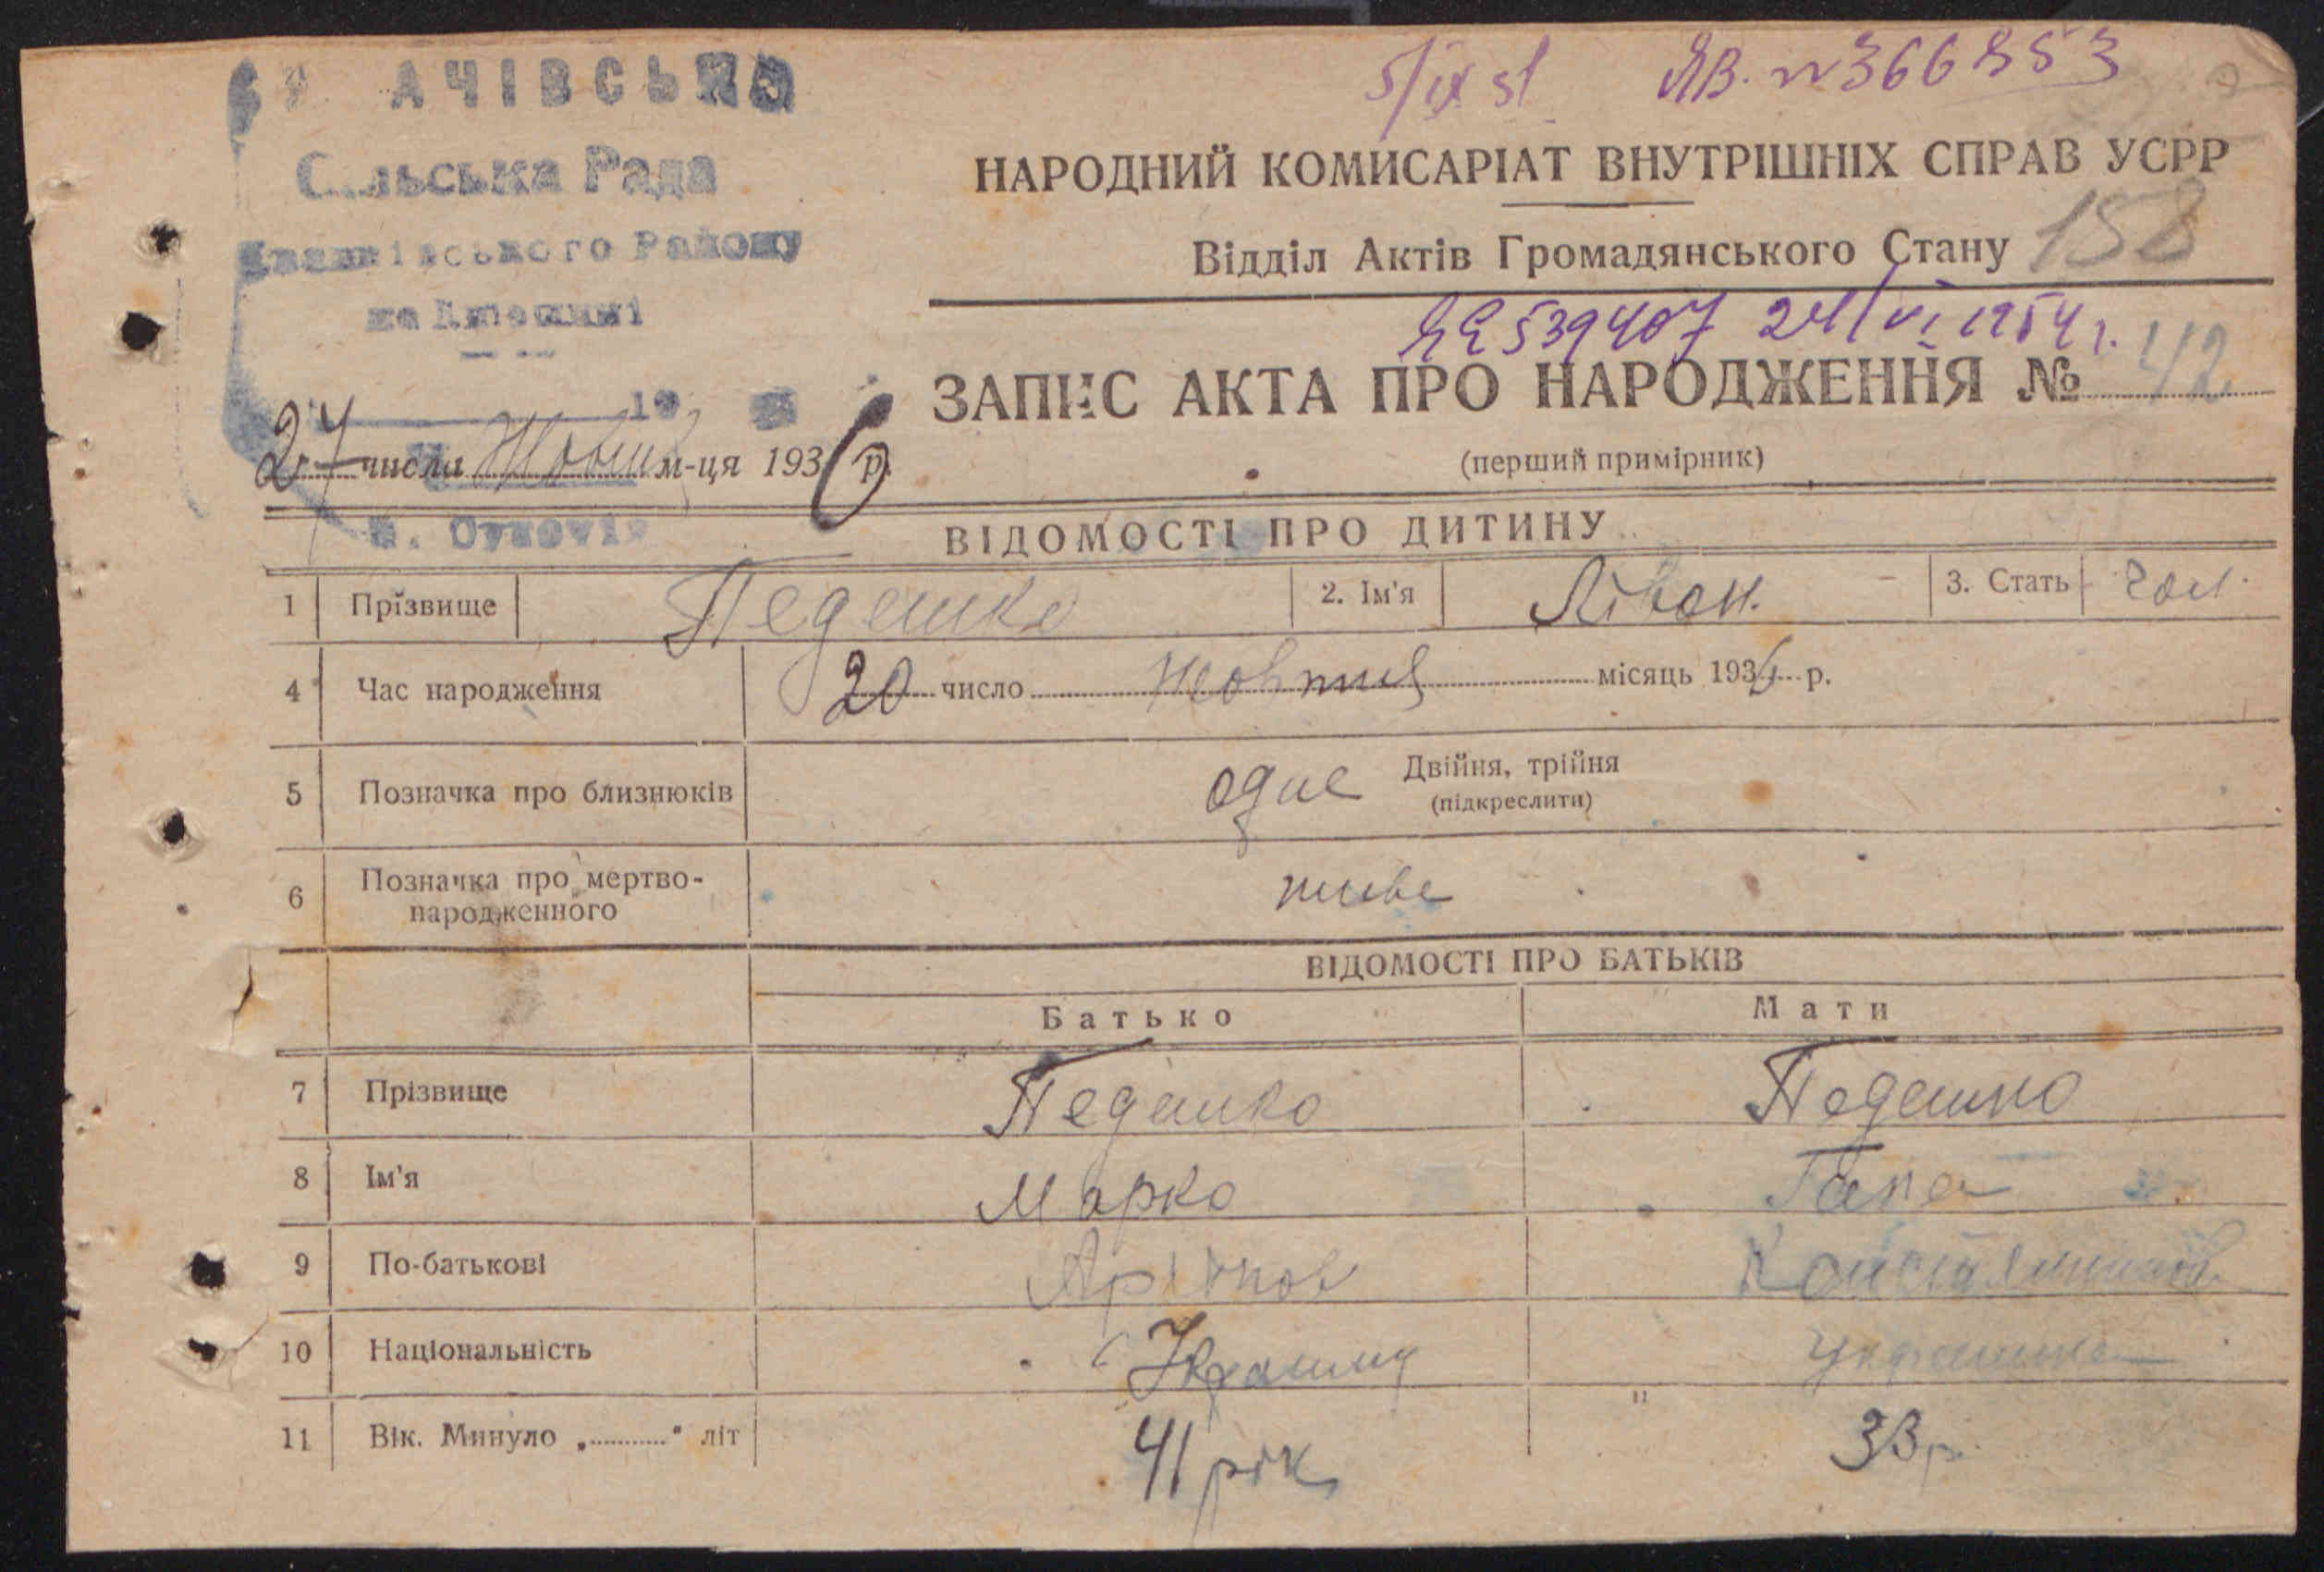 АЧІВСЬКА
5/IX 51 ЯВ. № 366853
Сільська Рада
НАРОДНИЙ КОМИСАРІАТ ВНУТРІШНІХ СПРАВ УСРР
Району
Відділ Актів Громадянського Стану 158
на
539407 24/VI 1954 г.
ЗАПИС АКТА ПРО НАРОДЖЕННЯ № 42
19
числа м-ця 1936 р.
(перший примірник)
ВІДОМОСТІ ПРО ДИТИНУ
1 Прізвище Педешко 2. Ім'я Ліван. 3. Стать чол.
4 Час народження 20 число Жовтня місяць 1936 р.
5 Позначка про близнюків одне Двійня, трійня
(підкреслити)
6 Позначка про мертво-
народженного живе
ВІДОМОСТІ ПРО БАТЬКІВ
Батько Мати
7 Прізвище Педешко Педешко
8 Ім'я Марко Гапа
9 По-батькові
10 Національність
11 Вік. Минуло „ “ літ 41 рік 33 р.